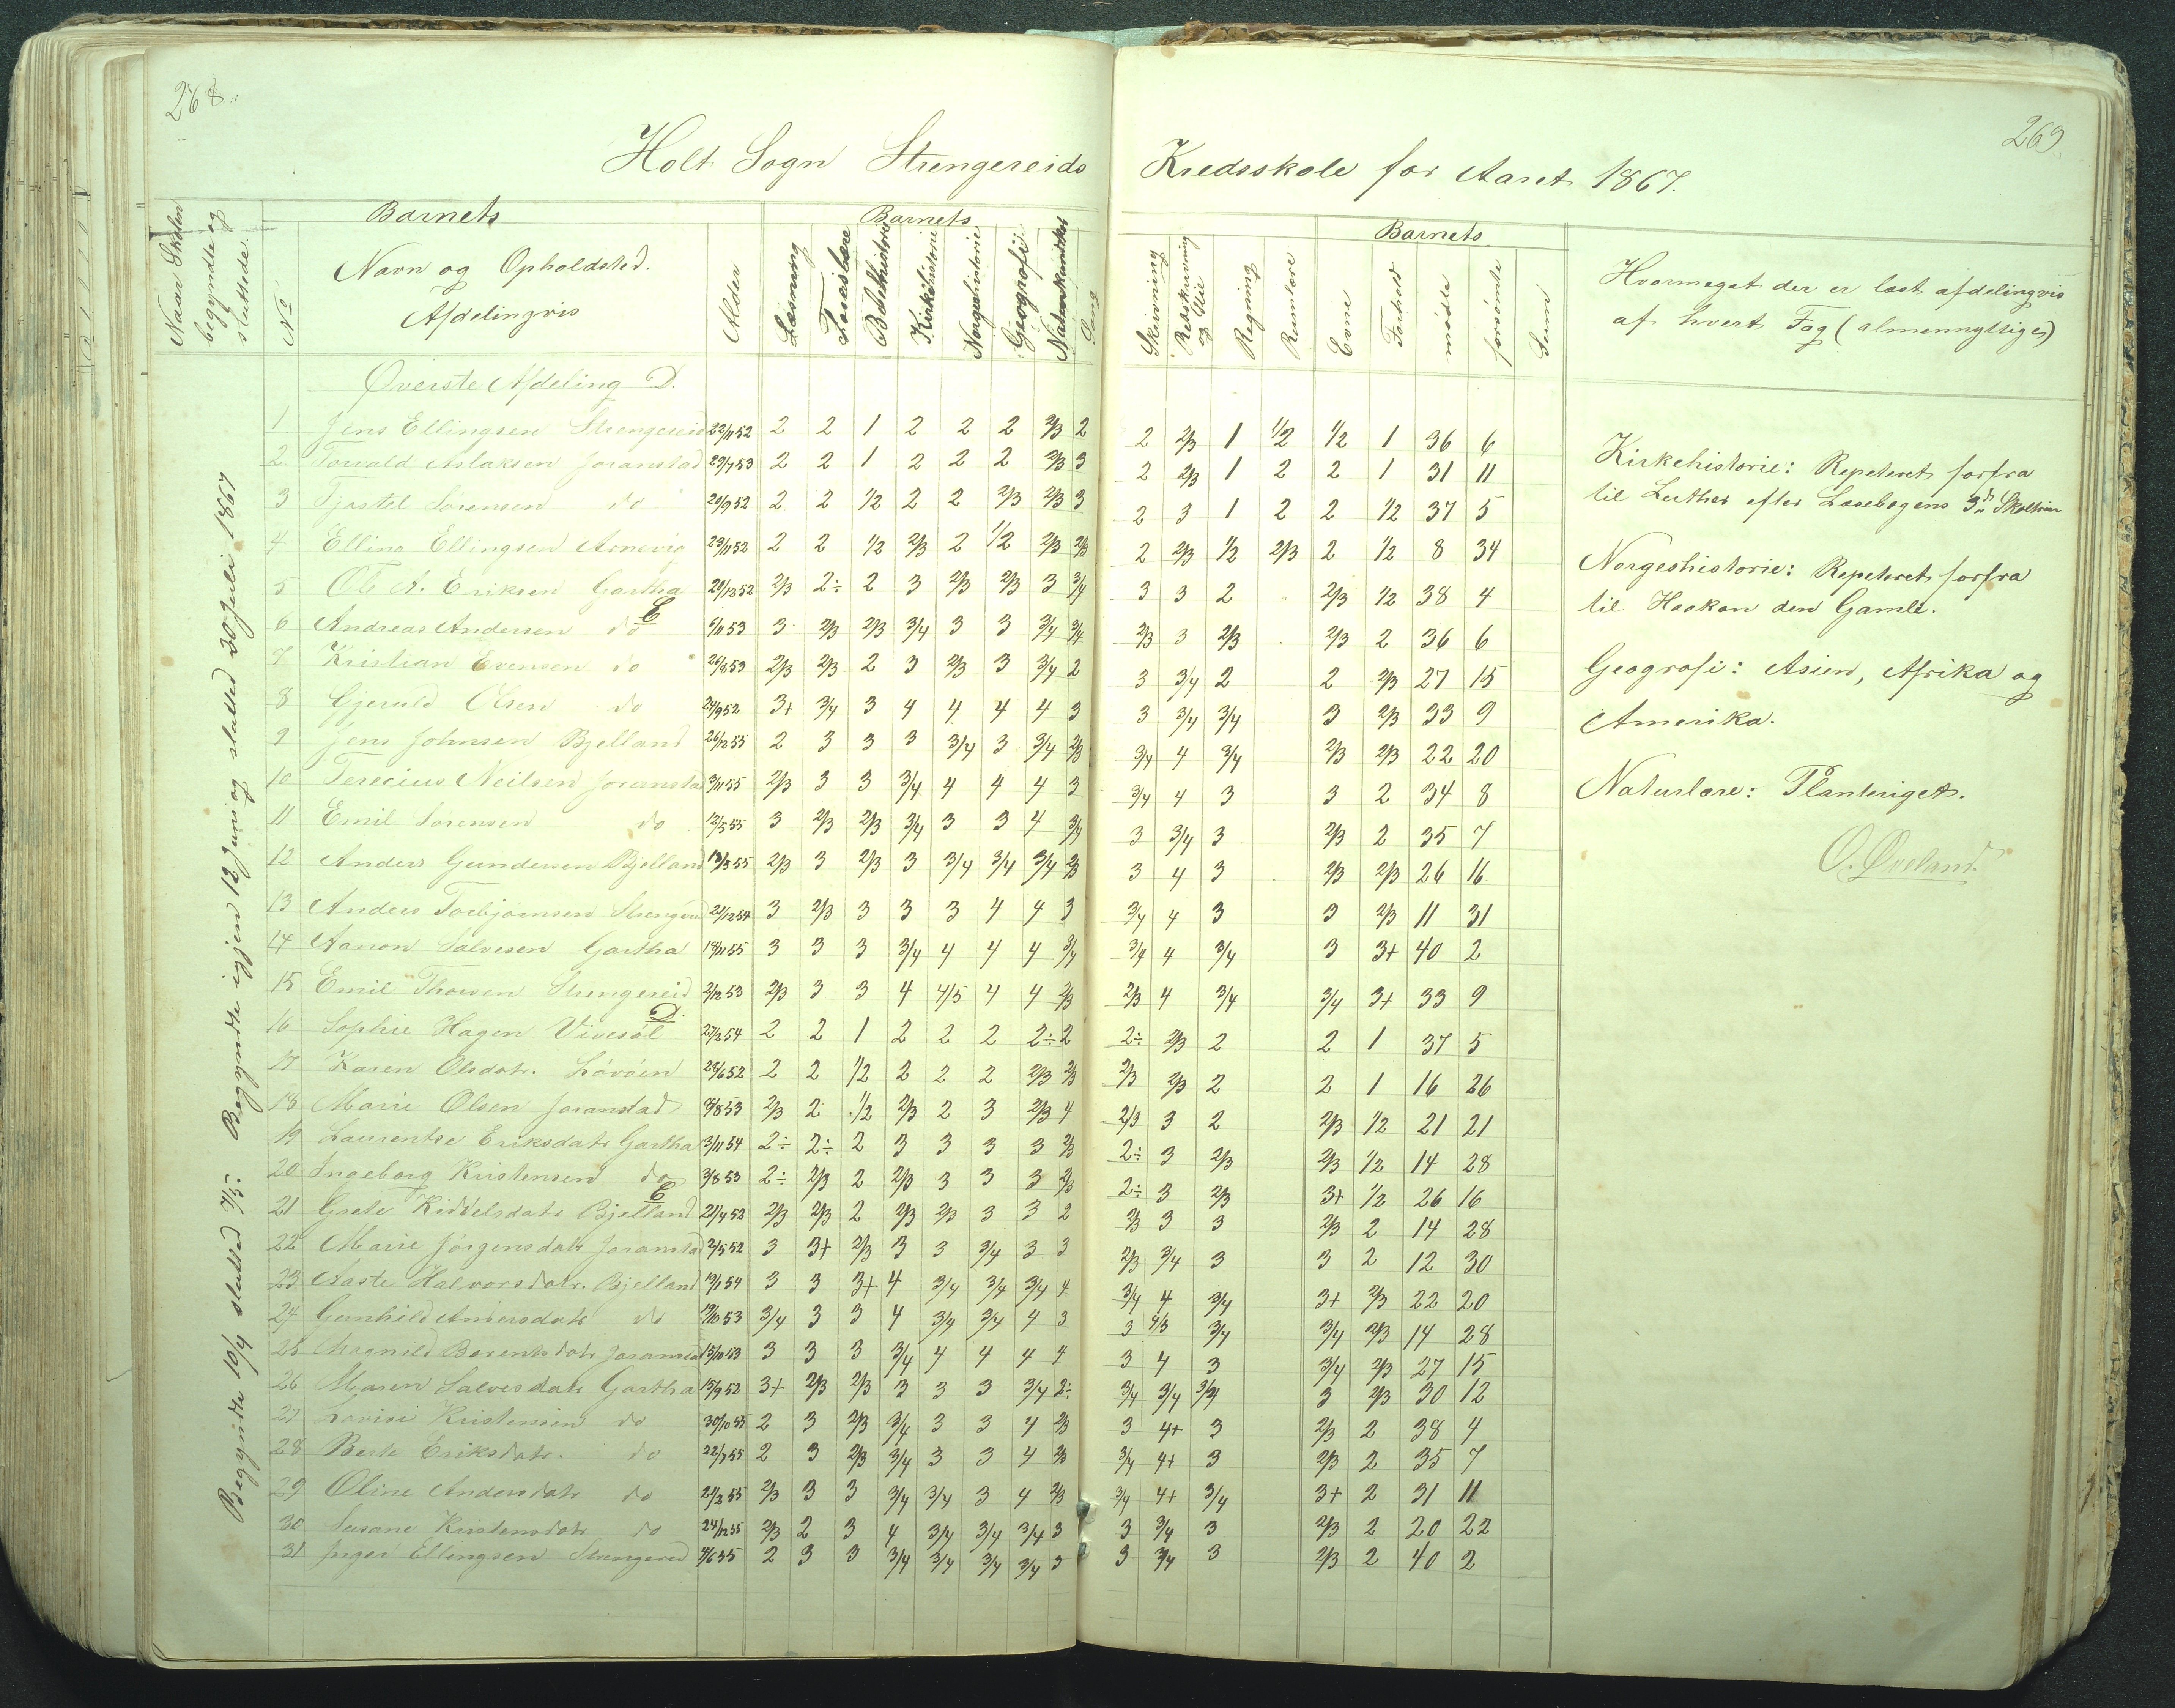 268.
Holt Sogn Strengereids
Naar Skolen begyndte og sluttede.
Barnets
Barnets
No
Navn og Opholdsted.
Afdelingvis
Alder
Læsning
Bibelhistorie
Kirkehistorie
Norgeshistorie
Geografi
Sang
Øverste Afdeling D.
1 Jens Ellingsen Strengereid 22/11 52 2 2 1 2 2 2 2/3 2
2 Torvald Aslaksen Joranstad 29/7 53 2 2 1 2 2 2 2/3 3
3 Tjostel Sørensen do 20/9 52 2 2 1/2 2 2 2/3 2/3 3
4 Elling Ellingsen Arnevig 23/11 52 2 2 1/2 2/3 2 1/2 2/3 2/3
5 Ole A. Eriksen Gartha 20/12 52 2/3 2÷ 2 3 2/3 2/3 3 3/4
E
6 Andreas Andersen do 6/11 53 3 2/3 2/3 3/4 3 3 3/4 3/4
7 Kristian Evensen do 26/8 53 2/3 2/3 2 3 2/3 3 3/4 2
8 Gjeruld Olsen do 24/9 52 3+ 3/4 3 4 4 4 4 3
9 Jens Johnsen Bjelland 26/12 55 2 3 3 3 3/4 3 3/4 2/3
10 Terecius Neilsen Joranstad 3/11 55 2/3 3 3 3/4 4 4 4 3
11 Emil Sørensen do 12/5 55 3 2/3 2/3 3/4 3 3 4 3/4
12 Anders Gundersen Bjelland 13/5 55 2/3 3 2/3 3 3/4 3/4 3/4 2/3
13 Anders Torbjørnsen 21/12 54 3 2/3 3 3 3 4 4 3
14 Aanon Salvesen Gartha 18/11 55 3 3 3 3/4 4 4 4 3/4
15 Emil Thorsen Strengereid 2/12 53 2/3 3 3 4 4/5 4 4 2/3
D.
16 Sophie Hagen Vivesøl 27/2 54 2 2 1 2 2 2 2÷ 2
17 Karen Olsdatr. Løvøen 28/6 52 2 2 1/2 2 2 2 2/3 2/3
18 Marie Olsen Joranstad 8/8 53 2/3 2 1/2 2/3 2 3 2/3 4
19 Laurentse Eriksdatr Gartha 3/11 54 2÷ 2÷ 2 3 3 3 3 2/3
20 Ingeborg Kristensen do 3/8 53 2÷ 2/3 2 2/3 3 3 3 2/3
E
21 Grete Kiddelsdatr Bjelland 21/4 52 2/3 2/3 2 2/3 2/3 3 3 2
22 Marie Jørgensdatr Joranstad 2/5 52 3 3+ 2/3 3 3 3/4 3 3
23 Aaste Halvorsdatr. Bjelland 19/1 54 3 3 3+ 4 3/4 3/4 3/4 4
24 Gunhild Andersdatr do 19/10 53 3/4 3 3 4 3/4 3/4 4 3
25 Magnild Berentsdatr Joranstad 13/10 53 3 3 3 3/4 4 4 4 4
26 Maren Salvesdatr Gartha 15/9 52 3+ 2/3 2/3 3 3 3 3/4 2÷
27 Lovise Kristensen do 30/10 55 2 3 2/3 3/4 3 3 4 2/3
28 Berte Eriksdatr. do 22/7 55 2 3 2/3 3/4 3 3 4 2/3
29 Oline Andersdatr do 21/2 55 2/3 3 3 3/4 3/4 3 4 2/3
30 Susane Kristensdatr do 24/12 55 2/3 2 3 4 3/4 3/4 3/4 3
31 Inger Ellingsen Strengereid 4/6 55 2 3 3 3/4 3/4 3/4 3/4 3
Begyndte 10/4 sluttet 7/5. Begyndte igjen 12 Juni og sluttet 30 Juli 1867
269.
Kredsskole for Aaret 1867.
Barnets
Skrivning
Retskrivning og Stile
Regning
Rumlære
Evne
Forhold
mødte
forsømte
Sum
Hvormeget der er læst afdelingvis
af hvert Fag (almennyttige)
2 2/3 1 1/2 1/2 1 36 6
2 2/3 1 2 2 1 31 11
2 3 1 2 2 1/2 37 5
2 2/3 1/2 2/3 2 1/2 8 34
3 3 2 2/3 1/2 38 4
2/3 3 2/3 2/3 2 36 6
3 3/4 2 2 2/3 27 15
3 3/4 3/4 3 2/3 33 9
3/4 4 3/4 2/3 2/3 22 20
3/4 4 3 3 2 34 8
3 3/4 3 2/3 2 35 7
3 4 3 2/3 2/3 26 16
3/4 4 3 3 2/3 11 31
3/4 4 3/4 3 3+ 40 2
2/3 4 3/4 3/4 3+ 33 9
2÷ 2/3 2 2 1 37 5
2/3 2/3 2 2 1 16 26
2/3 3 2 2/3 1/2 21 21
2÷ 3 2/3 2/3 1/2 14 28
2÷ 3 2/3 3+ 1/2 26 16
2/3 3 3 2/3 2 14 28
2/3 3/4 3 3 2 12 30
3/4 4 3/4 3+ 2/3 22 20
3 4/5 3/4 3/4 2/3 14 28
3 4 3 3/4 2/3 27 15
3/4 3/4 3/4 3 2/3 30 12
3 4+ 3 2/3 2 38 4
3/4 4+ 3 2/3 2 35 7
3/4 4+ 3/4 3+ 2 31 11
3 3/4 3 2/3 2 20 22
3 3/4 3 2/3 2 40 2
Kirkehistorie: Repeteret forfra
til Luther efter Læsebogens 3die
Norgeshistorie: Repeteret forfra
til Haakon den Gamle.
Geografi: Asien, Afrika og
Amerika.
Naturlære: Planteriget.
O. Øveland.